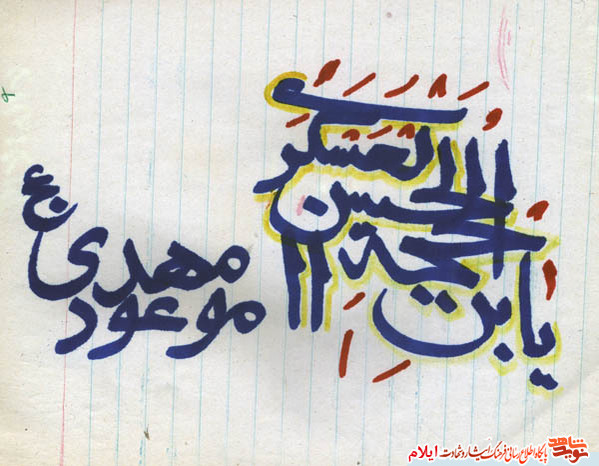 یا حجة بن الحسن العسکری
مهدی
موعود
عج
نوید شاهد
پایگاه اطلاع رسانی فرهنگ ایثار و شهادت ایلام